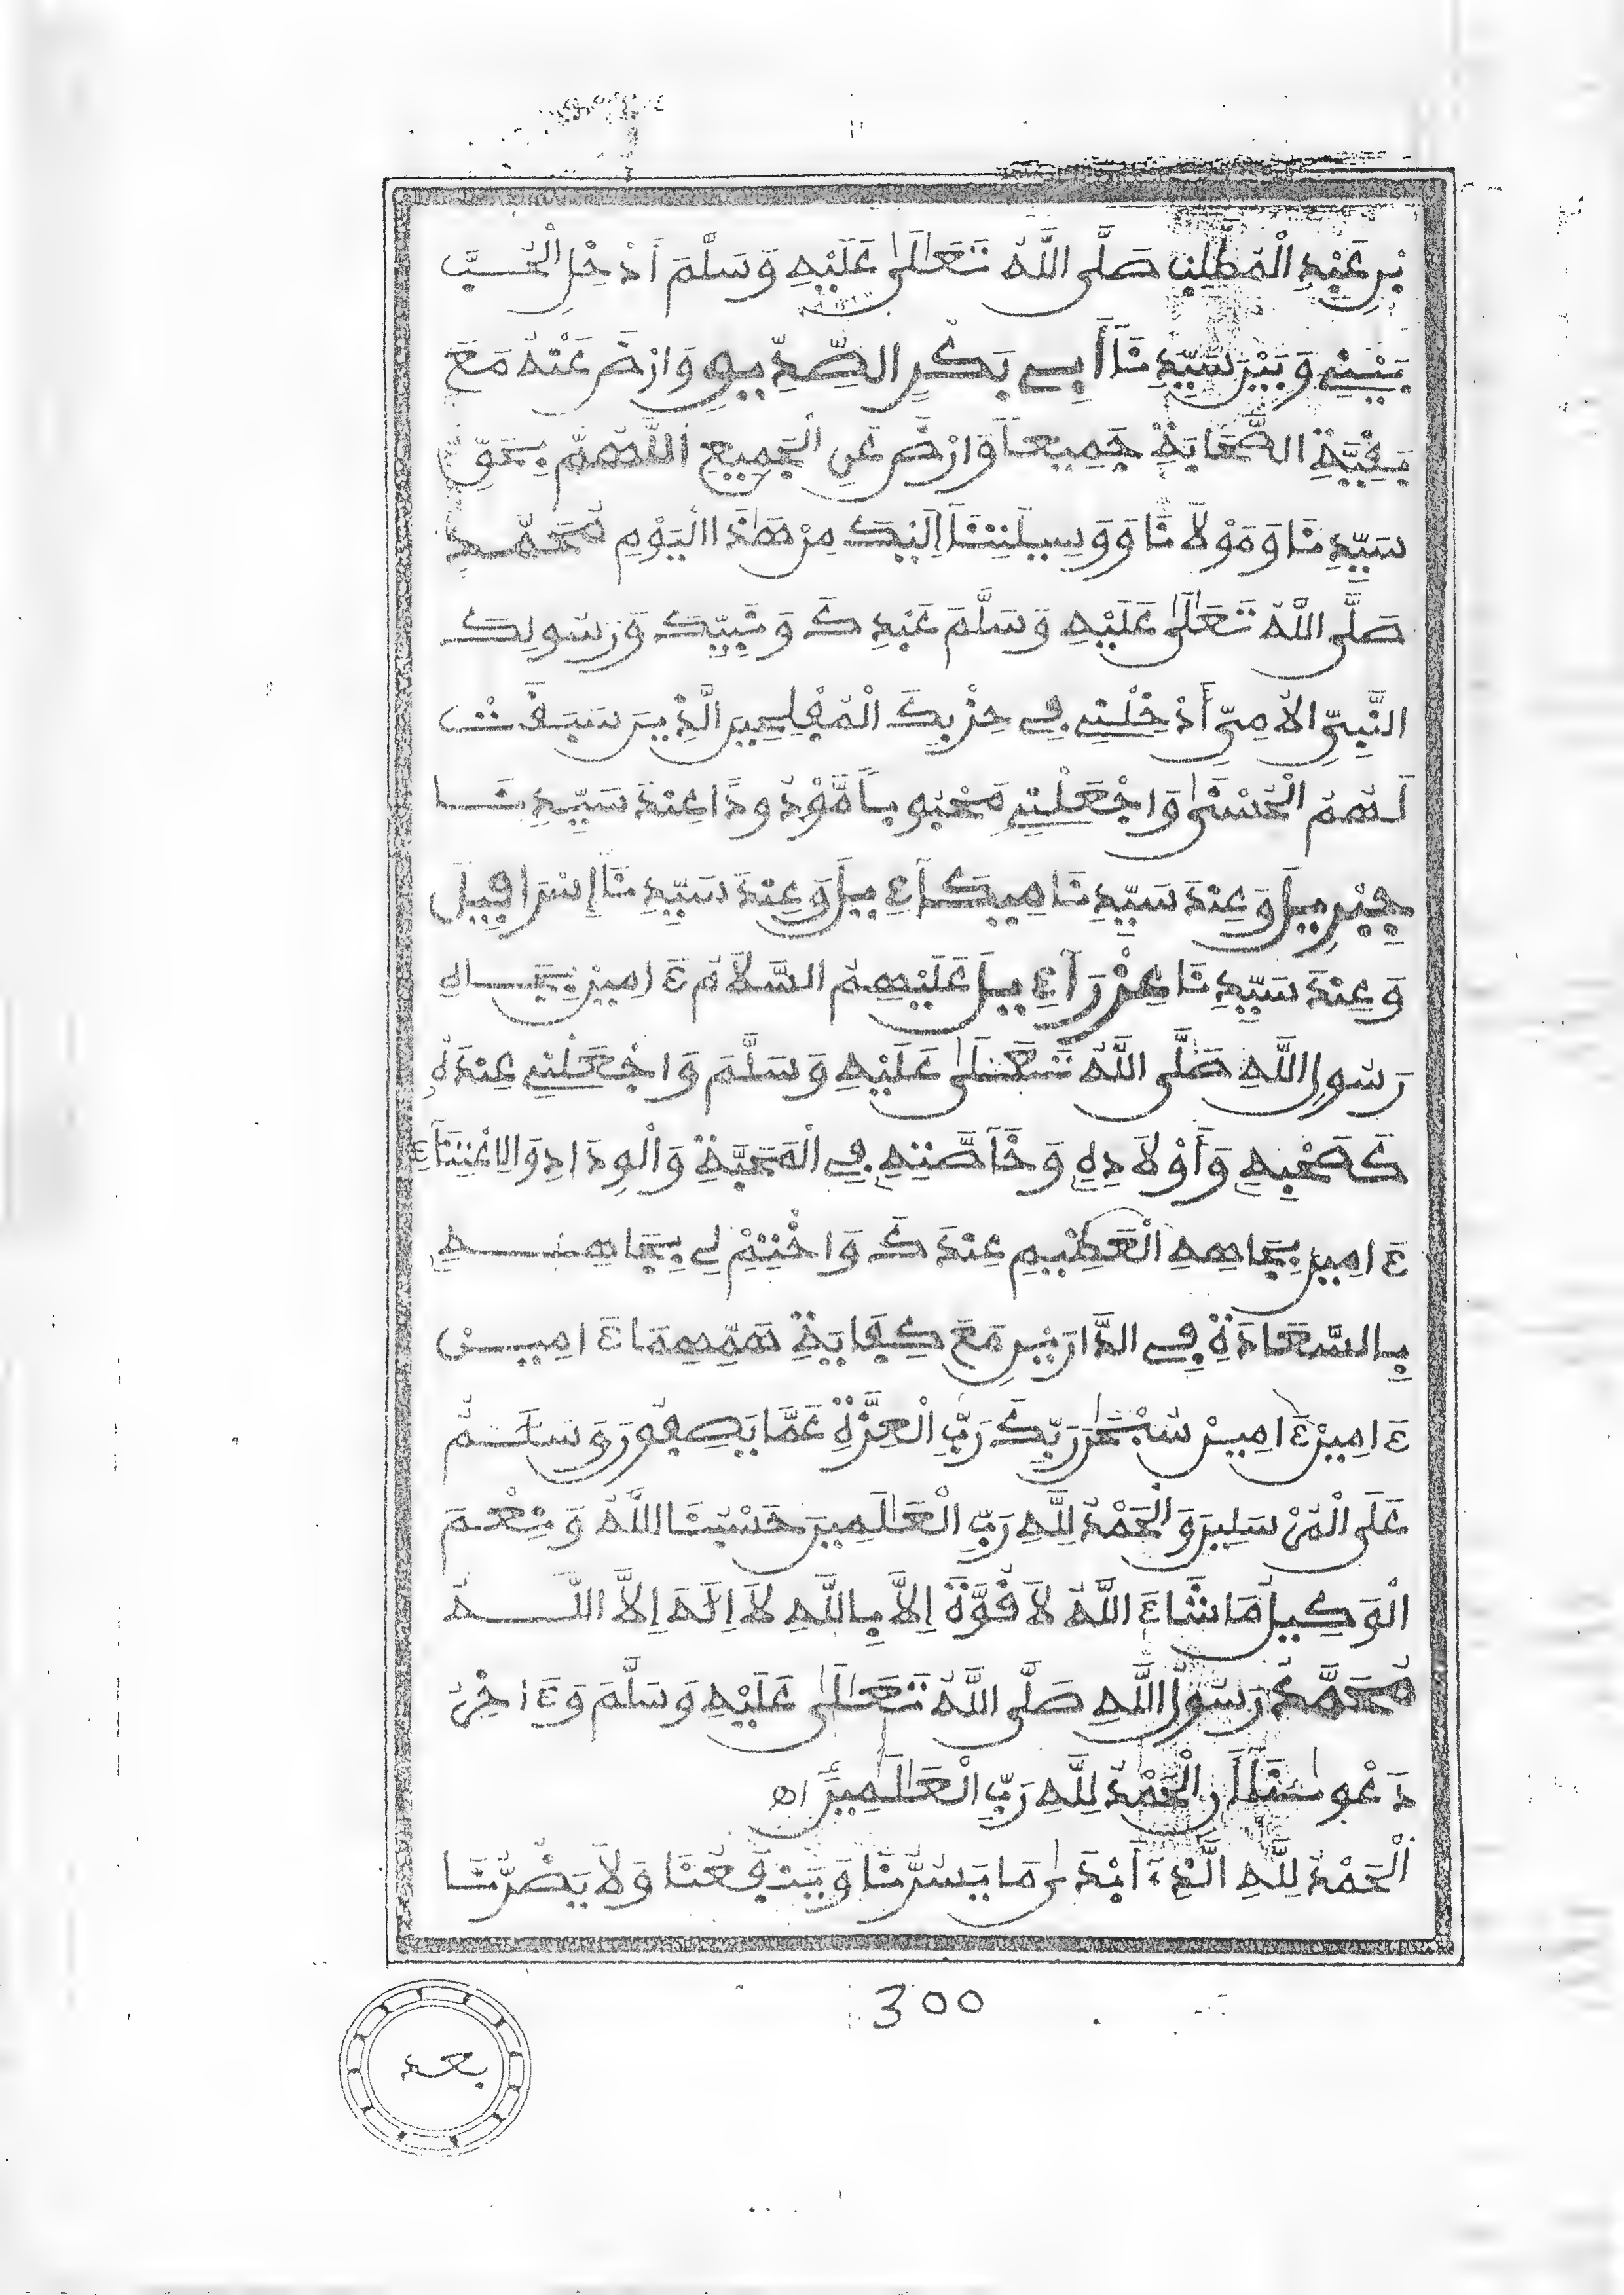 بْنِ عَبْدِ الْمُطَّلِبِ صَلَّى اللَّهُ تَعَالَىٰ عَلَيْهِ وَسَلَّمَ أَدْخِلِ الْحُبَّ
بَيْنِي وَبَيْنَ سَيِّدِنَا أَبِي بَكْرٍ الصِّدِّيقِ وَارْضَ عَنْهُ مَعَ
بَقِيَّةِ الصَّحَابَةِ جَمِيعًا وَارْضَ عَنِ الْجَمِيعِ اللَّهُمَّ بِحَقِّ
سَيِّدِنَا وَمَوْلَانَا وَوَسِيلَتِنَا إِلَيْكَ مِنْ هَٰذَا الْيَوْمِ مُحَمَّدٍ
صَلَّى اللَّهُ تَعَالَىٰ عَلَيْهِ وَسَلَّمَ عَبْدِكَ وَنَبِيِّكَ وَرَسُولِكَ
النَّبِيِّ الأُمِّيِّ أَدْخِلْنِي فِي حِزْبِكَ الْمُفْلِحِينَ الَّذِينَ سَبَقَتْ
لَهُمُ الْحُسْنَىٰ وَاجْعَلْنِي مَحْبُوبًا مَّوْدُودًا عِنْدَ سَيِّدِنَا
جِبْرِيلَ وَعِنْدَ سَيِّدِنَا مِيكَآءِيلَ وَعِنْدَ سَيِّدِنَا إِسْرَافِيلَ
وَعِنْدَ سَيِّدِنَا عِزْرَآءِيلَ عَلَيْهِمُ السَّلَامُ ءَامِينْ بِجَاهِ
رَسُولِ اللَّهِ صَلَّى اللَّهُ تَعَالَىٰ عَلَيْهِ وَسَلَّمَ وَاجْعَلْنِي عِنْدَهُ
كَصَحْبِهِ وَأَوْلَادِهِ وَخَآصَّتِهِ فِي الْمَحَبَّةِ وَالْوِدَادِ وَالِاعْتِنَآءِ
ءَامِين بِجَاهِهِ الْعَظِيمِ عِنْدَكَ وَاخْتِمْ لِي بِجَاهِهِ
بِالسَّعَادَةِ فِي الدَّارَيْنِ مَعَ كِفَايَةِ هَمِّهِمَا ءَامِينْ
ءَامِينْ ءَامِينْ سُبْحَٰنَ رَبِّكَ رَبِّ الْعِزَّةِ عَمَّا يَصِفُونَ وَسَلَٰمٌ
عَلَى الْمُرْسَلِينَ وَالْحَمْدُ لِلَّهِ رَبِّ الْعَٰلَمِينَ حَسْبُنَا اللَّهُ وَنِعْمَ
الْوَكِيلُ مَا شَاءَ اللَّهُ لَا قُوَّةَ إِلَّا بِاللَّهِ لَا إِلَٰهَ إِلَّا اللَّهُ
مُحَمَّدٌ رَسُولُ اللَّهِ صَلَّى اللَّهُ تَعَالَىٰ عَلَيْهِ وَسَلَّمَ وَءَاخِرُ
دَعْوٰنَا أَنِ الْحَمْدُ لِلَّهِ رَبِّ الْعَٰلَمِينَ اه
الْحَمْدُ لِلَّهِ الَّذِي أَبْدَىٰ مَا يَسُرُّنَا وَيَنفَعُنَا وَلَا يَضُرُّنَا
300
بعد